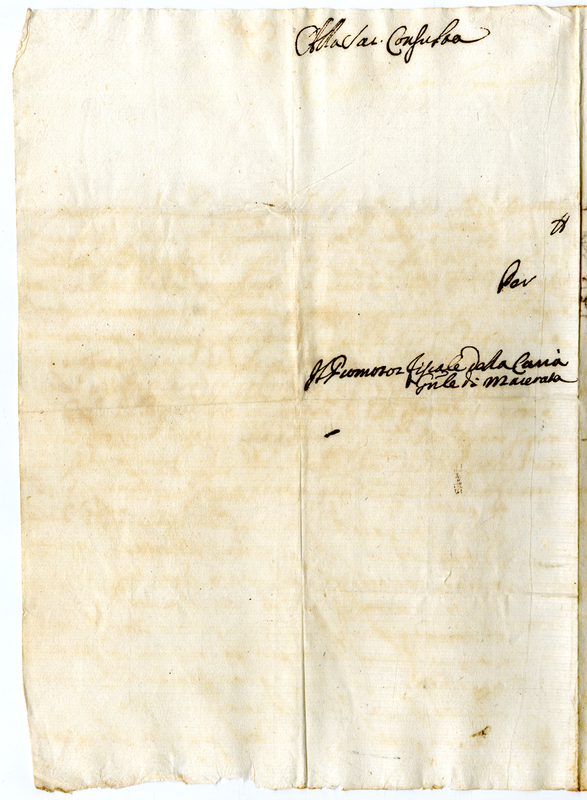 Alla Sac. Consulta
Per
Il Promotor fiscale della Curia
Gnle di Macerata